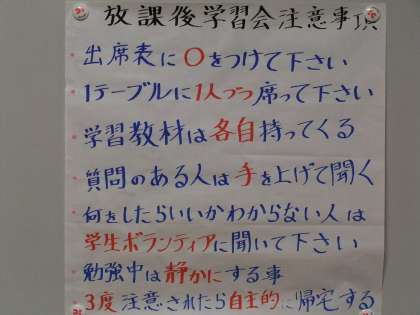 放課後学習会注意事項
出席表に〇をつけて下さい
1テーブルに1人づつ席って下さい
学習教材は各自持ってくる
質問のある人は手を上げて聞く
何をしたらいいかわからない人は
学生ボランティアに聞いて下さい
勉強中は静かにする事
3度注意されたら自主的に帰宅する